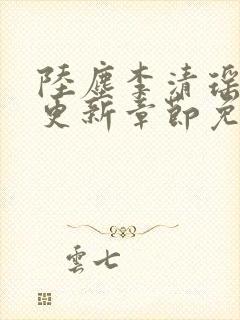 陸塵李清瑶
更新章節免
雲七